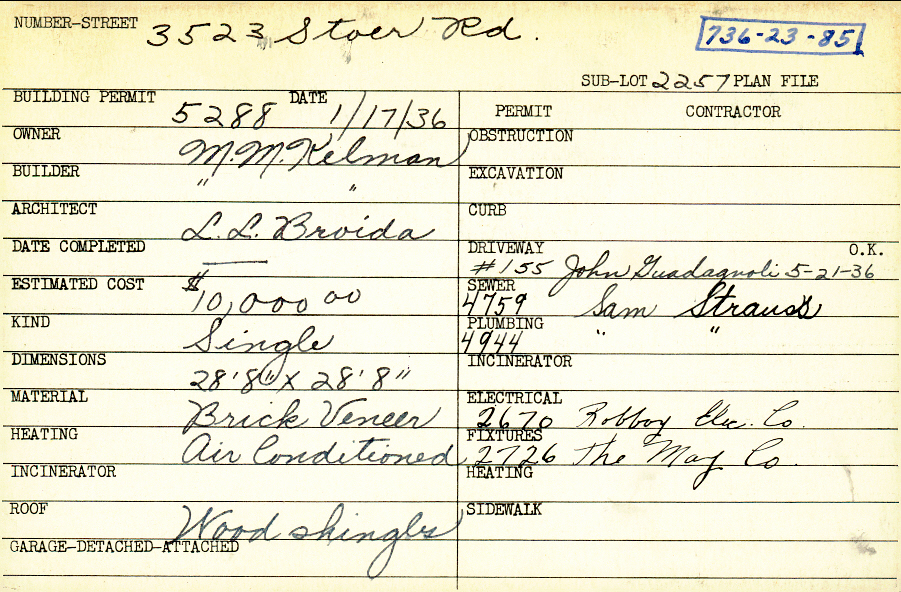 NUMBER-STREET 3523 Stoer Rd. 736-23-85
SUB-LOT 2257 PLAN FILE
BUILDING PERMIT 5288 DATE 1/17/36
PERMIT CONTRACTOR
OWNER M.M. Kelman
OBSTRUCTION
BUILDER " "
EXCAVATION
ARCHITECT L.L. Broida
CURB
DATE COMPLETED —
DRIVEWAY O.K.
#155 John Guadagnoli 5-21-36
ESTIMATED COST $10,000 00
SEWER
4759 Sam Strauss
KIND Single
PLUMBING
4944 " "
DIMENSIONS 28'8" X 28'8"
INCINERATOR
MATERIAL Brick Veneer
ELECTRICAL
2670 Robboy Elec. Co.
HEATING Air Conditioned
FIXTURES
2726 The May Co.
INCINERATOR
HEATING
ROOF Wood shingles
SIDEWALK
GARAGE-DETACHED-ATTACHED